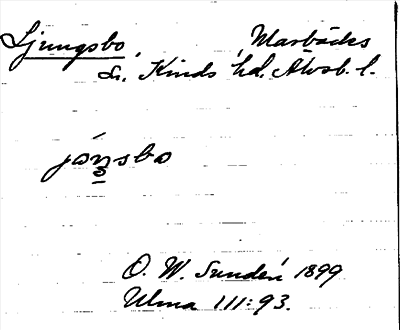 Ljungsbo, Marbäcks
sn. Kinds hd. Älvsb. l.
O. W. Sundén 1899
Ulma 111:93.